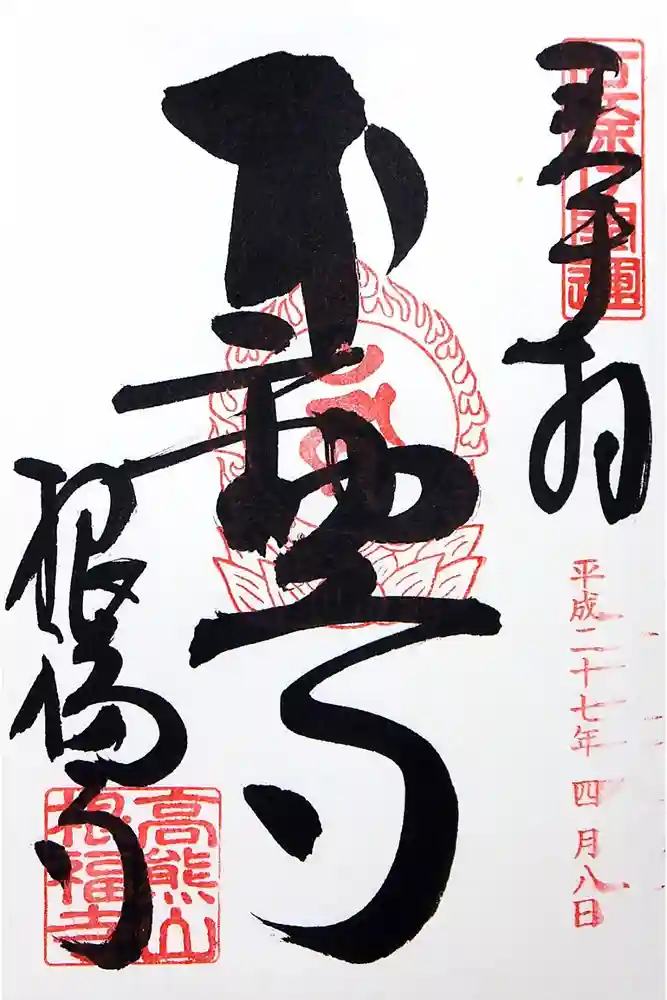 厄除け開運
奉拝
平成二十七年 四月八日
不動尊
根福寺
高熊山
根福寺